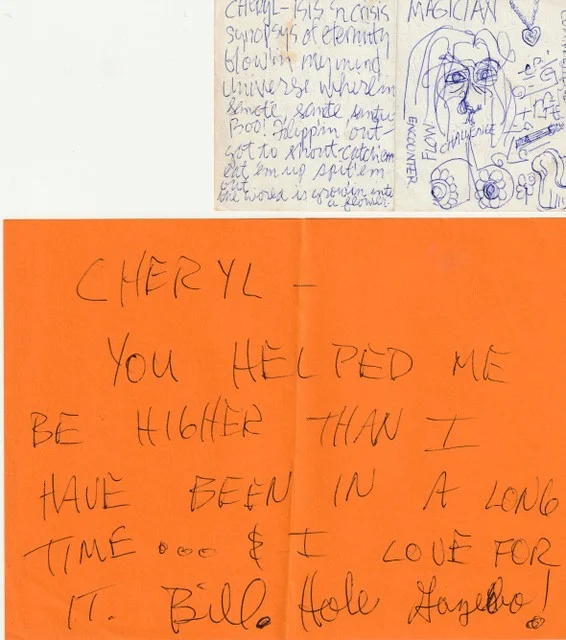 CHERYL - ISIS 'N CRISIS
synopsys of eternity
blowin my mind
universe wherein
sanctu
Boo! Flippin out-
got to shout-catch em
eat em up spit 'em
out
the world is growin into
a flower
MAGICIAN
FLOW
ENCOUNTER
CHALLENGE
CHERYL -
YOU HELPED ME
BE HIGHER THAN I
HAVE BEEN IN A LONG
TIME ... & I LOVE FOR
IT. Bill. Hole Gazebo!